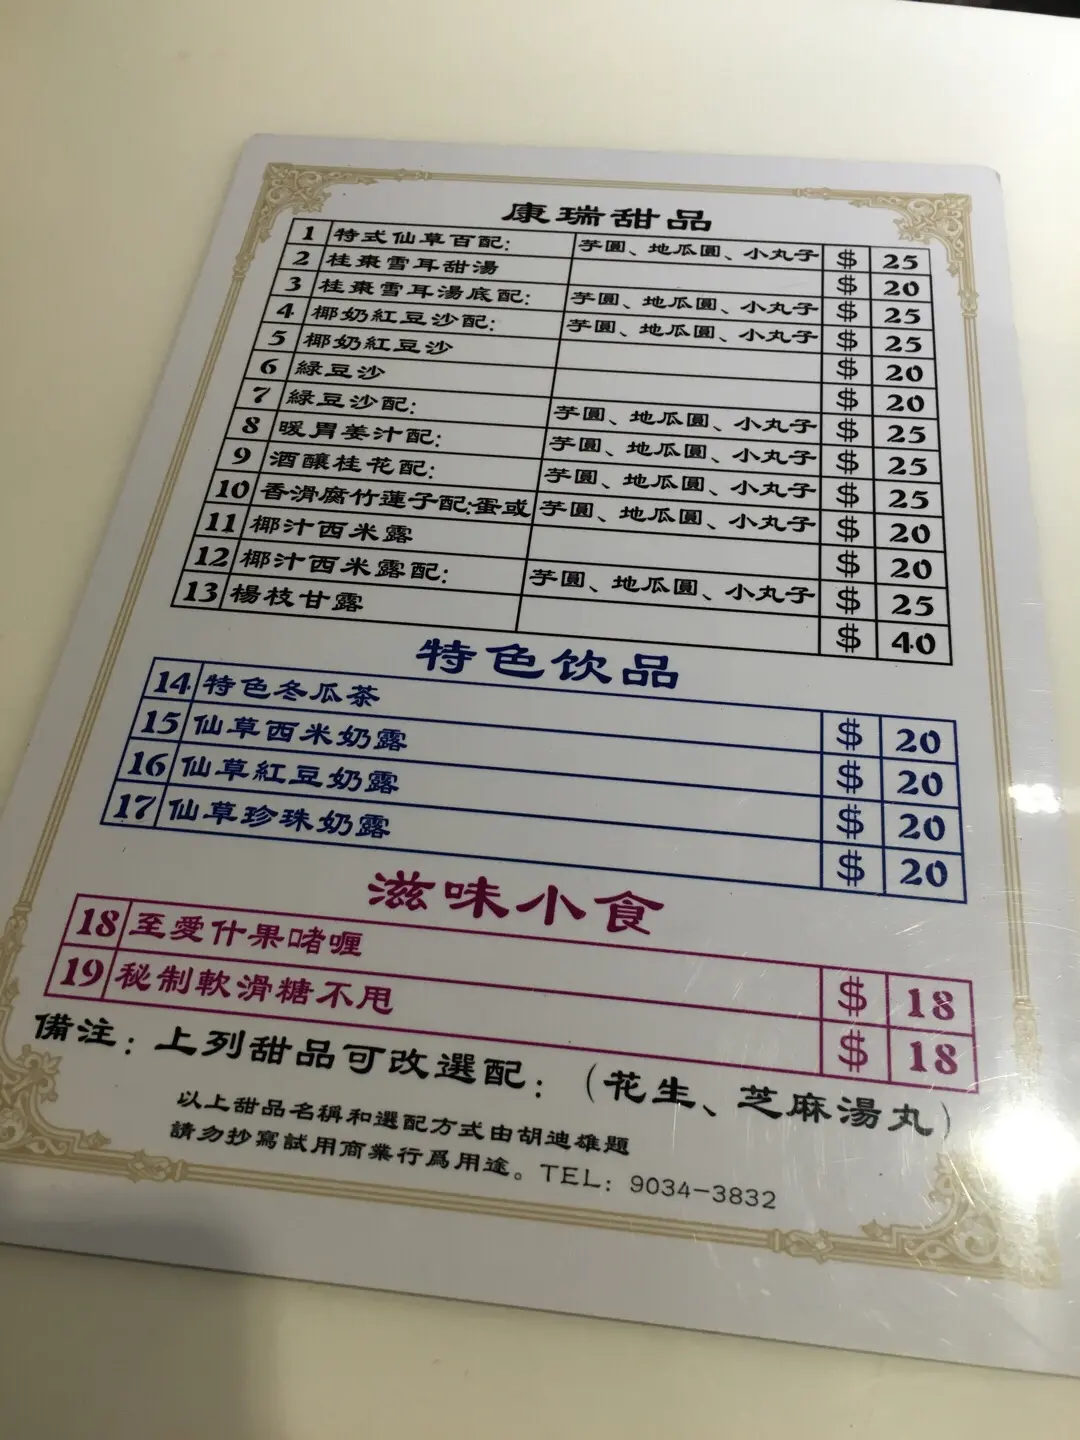 康瑞甜品
1 特式仙草百配: 芋圓、地瓜圓、小丸子 $ 25
2 桂棗雪耳甜湯 $ 20
3 桂棗雪耳湯底配: 芋圓、地瓜圓、小丸子 $ 25
4 椰奶紅豆沙配: 芋圓、地瓜圓、小丸子 $ 25
5 椰奶紅豆沙 $ 20
6 緑豆沙 $ 20
7 緑豆沙配: 芋圓、地瓜圓、小丸子 $ 25
8 暖胃姜汁配: 芋圓、地瓜圓、小丸子 $ 25
9 酒釀桂花配: 芋圓、地瓜圓、小丸子 $ 25
10 香滑腐竹蓮子配:蛋或 芋圓、地瓜圓、小丸子 $ 20
11 椰汁西米露 $ 20
12 椰汁西米露配: 芋圓、地瓜圓、小丸子 $ 25
13 楊枝甘露 $ 40
特色饮品
14 特色冬瓜茶 $ 20
15 仙草西米奶露 $ 20
16 仙草紅豆奶露 $ 20
17 仙草珍珠奶露 $ 20
滋味小食
18 至愛什果啫喱 $ 18
19 秘制軟滑糖不甩 $ 18
備注: 上列甜品可改選配: (花生、芝麻湯丸)
以上甜品名稱和選配方式由胡迪雄題
請勿抄寫試用商業行爲用途。TEL: 9034-3832